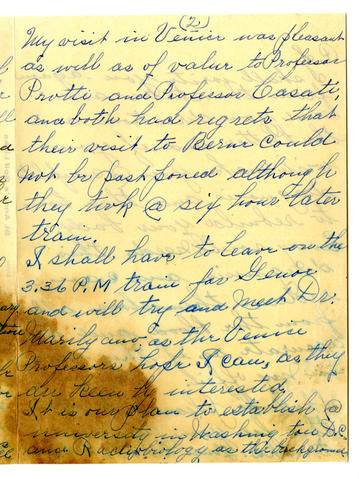 (2)
My visit in Venice was pleasant
as well as of value to Professor
Protti and Professor Casati,
and both had regrets that
their visit to Berne could
not be postponed although
they took @ six hour later
train.
I shall have to leave on the
3.36 P.M train for Genoe
and will try and meet Dr.
as the Venice
Professors hope I can, as they
are keenly interested.
It is our plan to establish @
university in Washington D.C.
and Radiobiology as the background